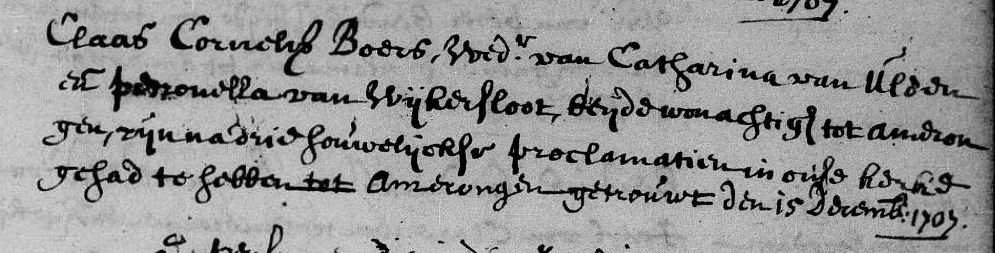 1707.
Claas Cornelisz Boers, Wedr. van Catharina van Ulden
en petronella van Wijkersloot, beijde wonachtigh tot Ameron
gen, zijn na drie houwelijckse proclamatien in onse kerke
gehad te hebben tot Amerongen getrouwt den 15 Decemb: 1707.